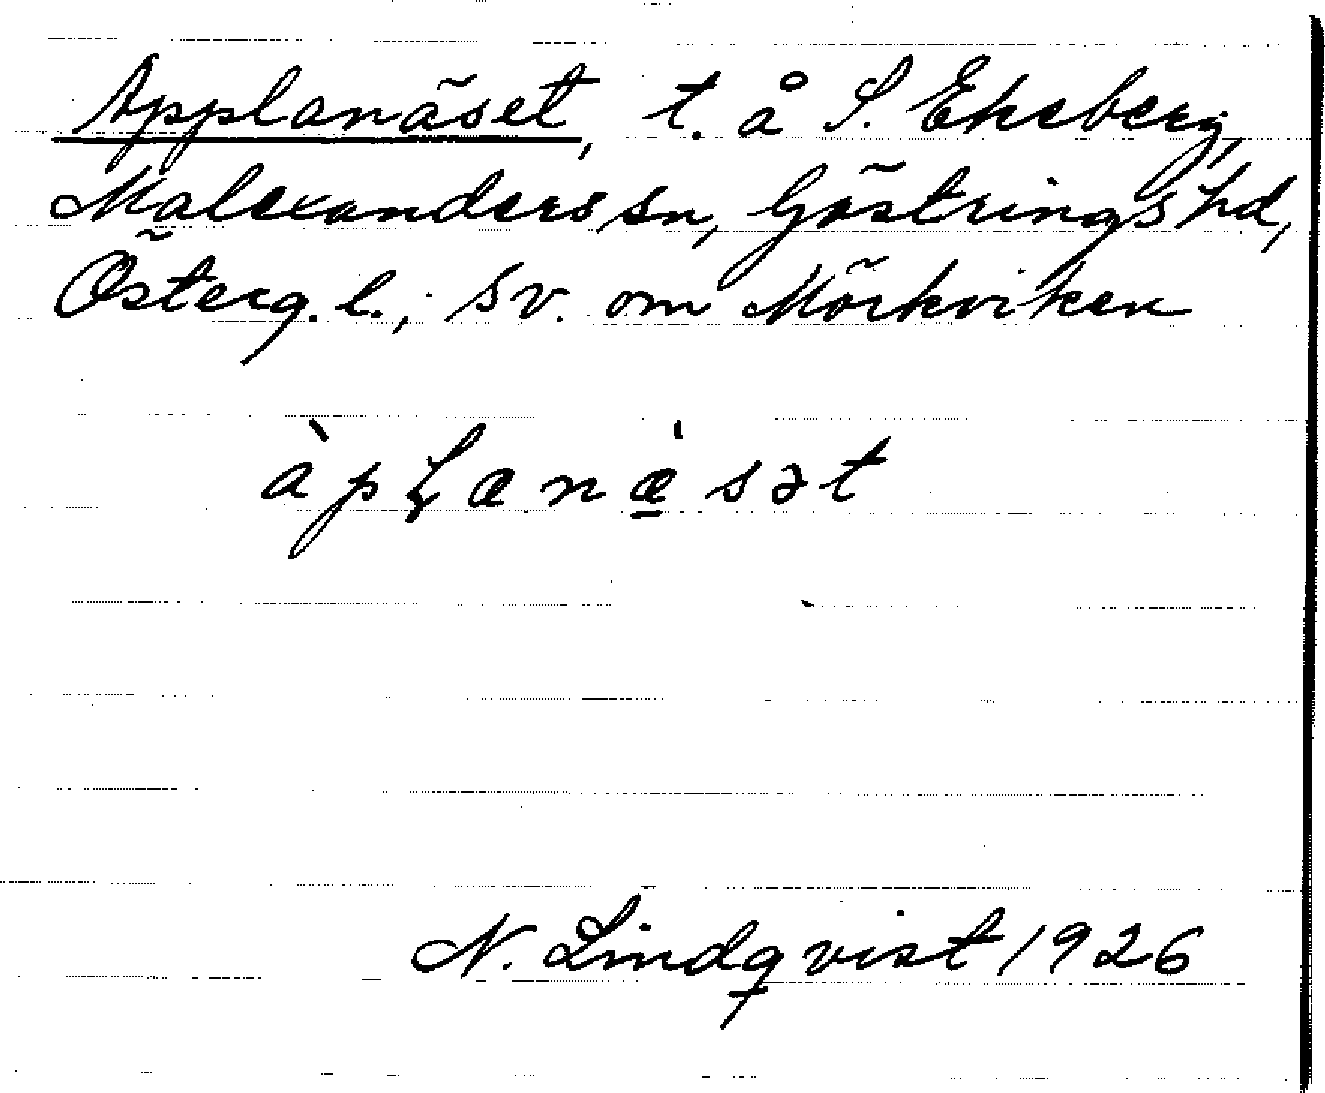 Applanäset, t. å S. Ekeberg,
Malexanders sn, Göstrings hd,
Österg. l.; sv. om Mörkviken
àpɽanæ̠̀sət
N. Lindqvist 1926